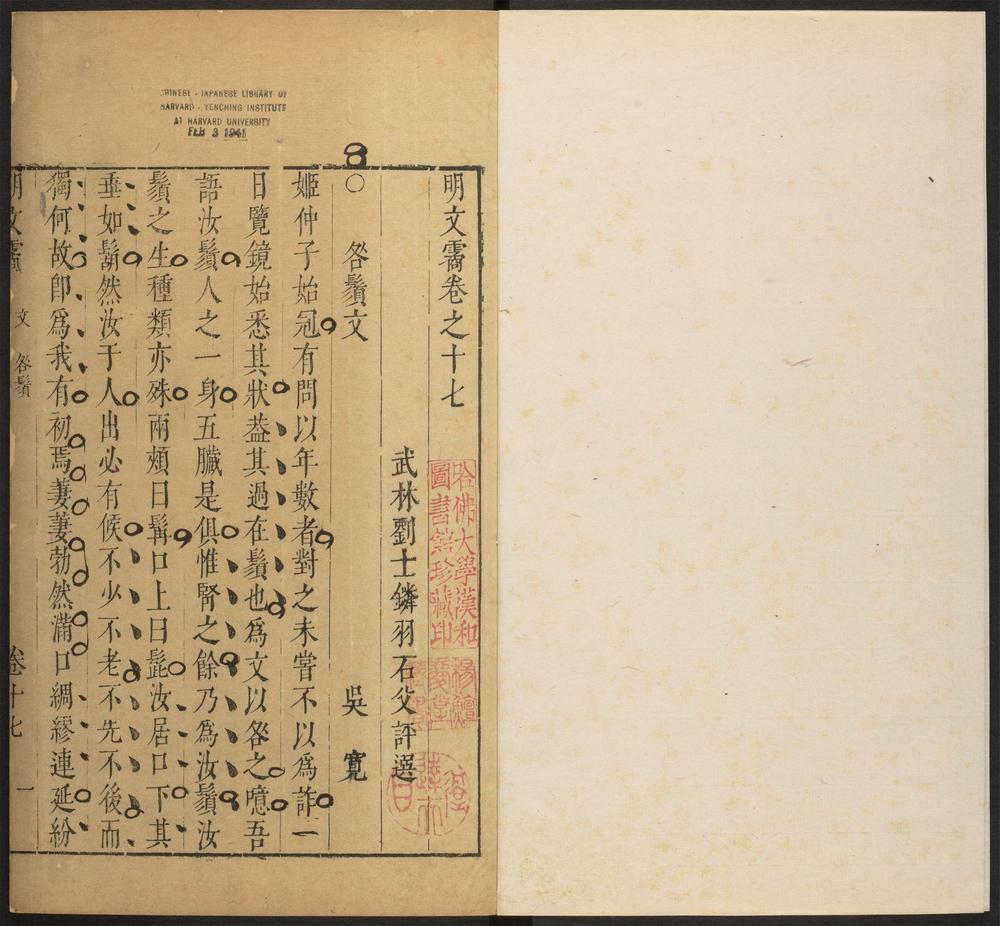 CHINESE - JAPANESE LIBRARY OF
HARVARD - YENCHING INSTITUTE
AT HARVARD UNIVERSITY
FEB 3 1941
8
明文霱卷之十七
哈佛大學漢和
圖書館珍藏印
武林劉士鏻羽石父評選
○咎鬚文 吳寬
姬仲子始冠有問以年數者對之未嘗不以為詐一
日覽鏡始悉其狀葢其過在鬚也為文以咎之噫吾
語汝鬚人之一身五臟是俱惟腎之餘乃為汝鬚汝
鬚之生種類亦殊兩頰曰髯口上曰髭汝居口下其
垂如鬍然汝于人出必有候不少不老不先不後而
獨何故卽為我有初焉萋萋勃然滿口綢繆連延紛
明文霱 文 咎鬚 卷十七 一